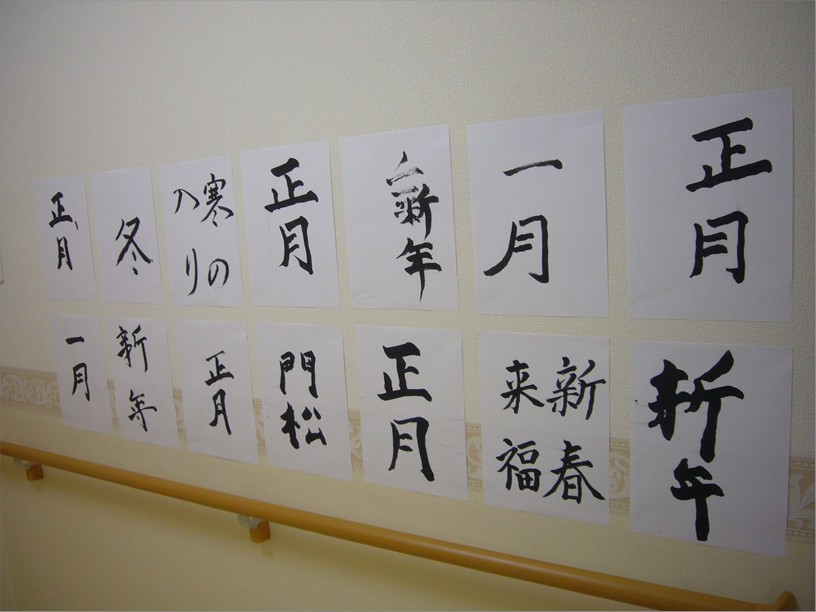 正月
冬
寒の
入り
正月
新年
一月
正月
一月
新年
正月
門松
正月
新春
来福
新年